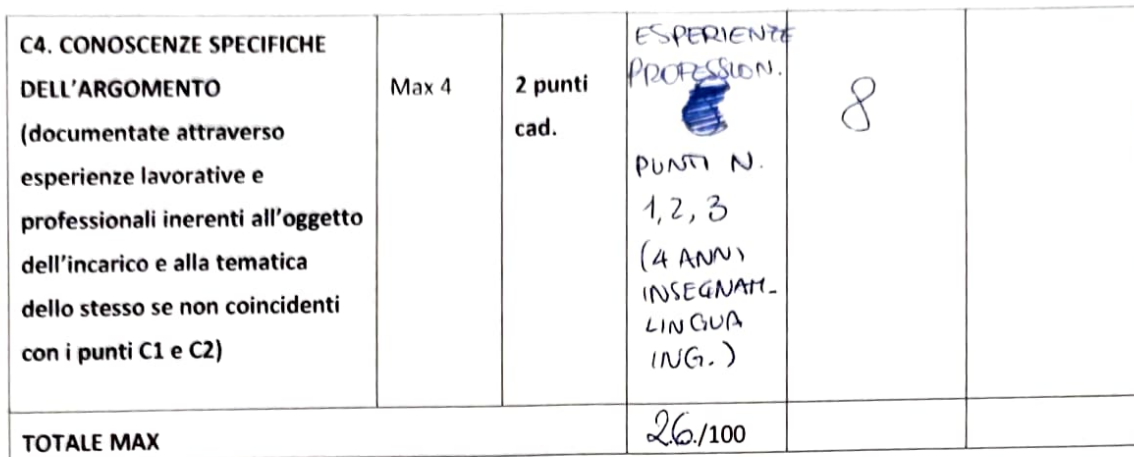 C4. CONOSCENZE SPECIFICHE
DELL'ARGOMENTO
(documentate attraverso
esperienze lavorative e
professionali inerenti all'oggetto
dell'incarico e alla tematica
dello stesso se non coincidenti
con i punti C1 e C2)
Max 4
2 punti
cad.
ESPERIENZE
PROFESSION.
PUNTI N.
1, 2, 3
(4 ANNI
INSEGNAM-
LINGUA
ING.)
8
TOTALE MAX
26./100